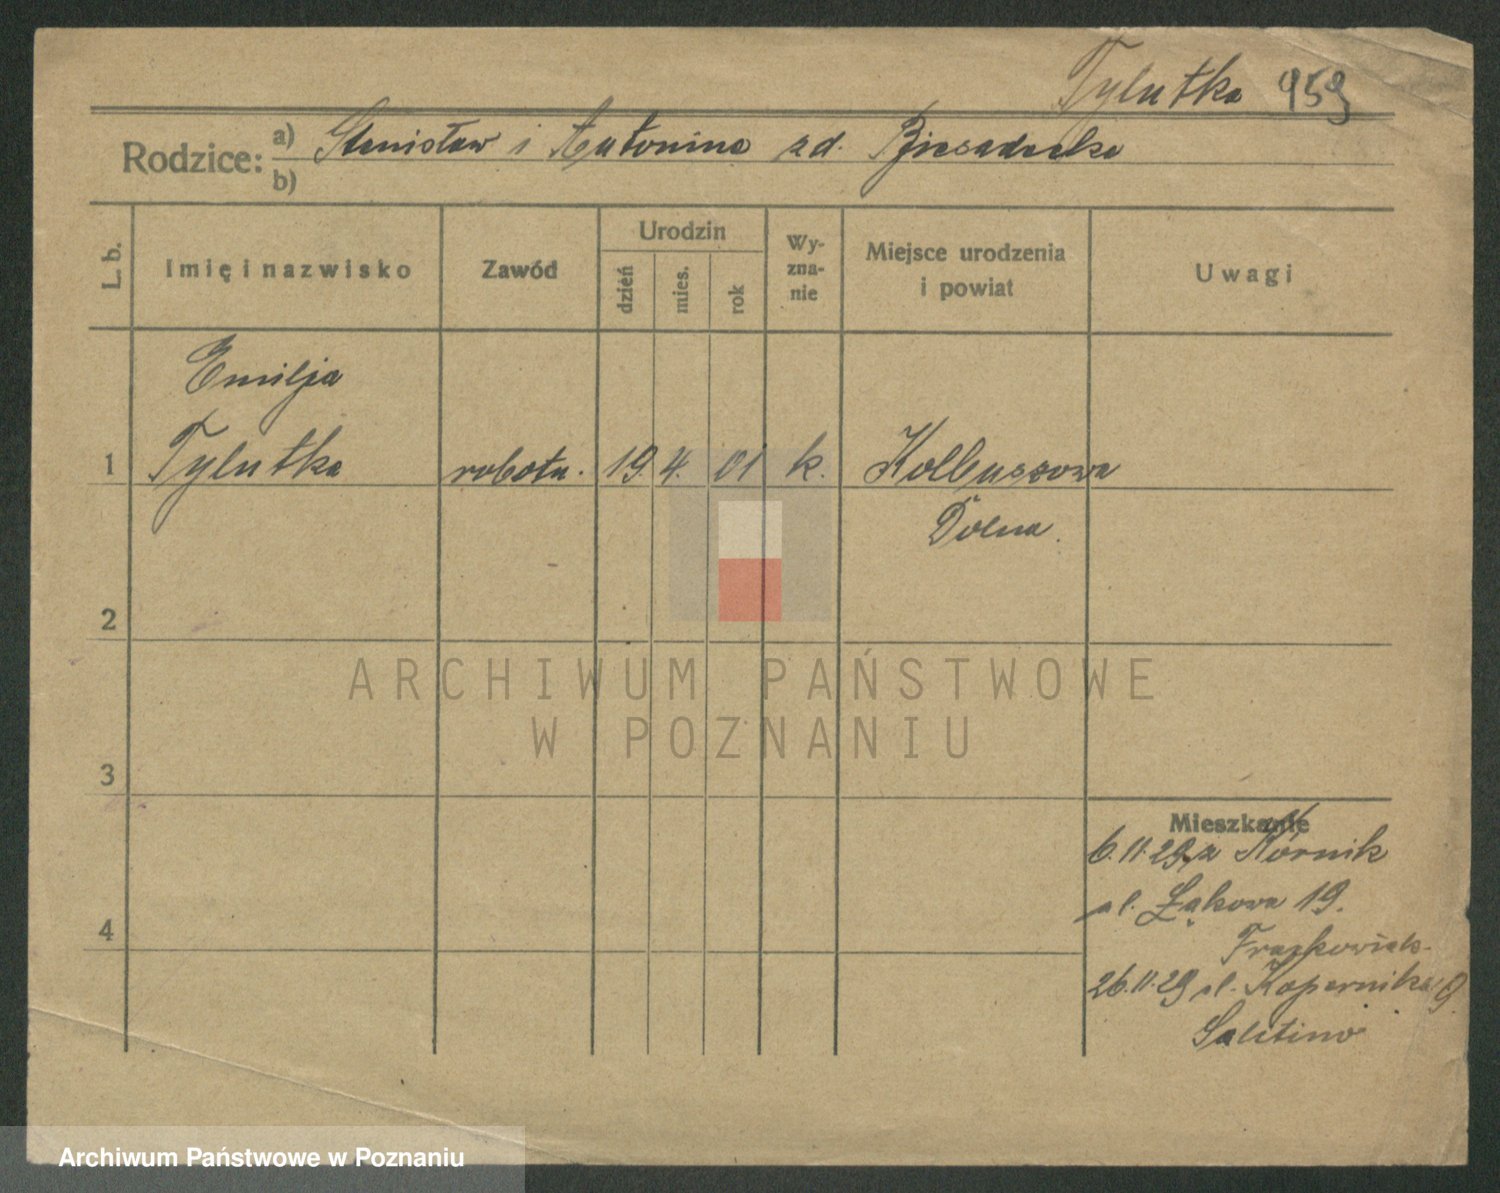 Tylutka 959
Rodzice: a) Stanisław i Antonina zd. Biesiadecka
b)
L. b.
Imię i nazwisko
Zawód
Urodzin
dzień
mies.
rok
Wy-
zna-
nie
Miejsce urodzenia
i powiat
Uwagi
Emilja
1 Tylutka robotn. 19. 4. 01 k. Kolbuszowa
Dolna.
2
3
4
Mieszkanie
6.11.29 z Kórnik
ul. Łąkowa 19.
26.11.29 ul. Kopernika 9
ARCHIWUM PAŃSTWOWE
W POZNANIU
Archiwum Państwowe w Poznaniu